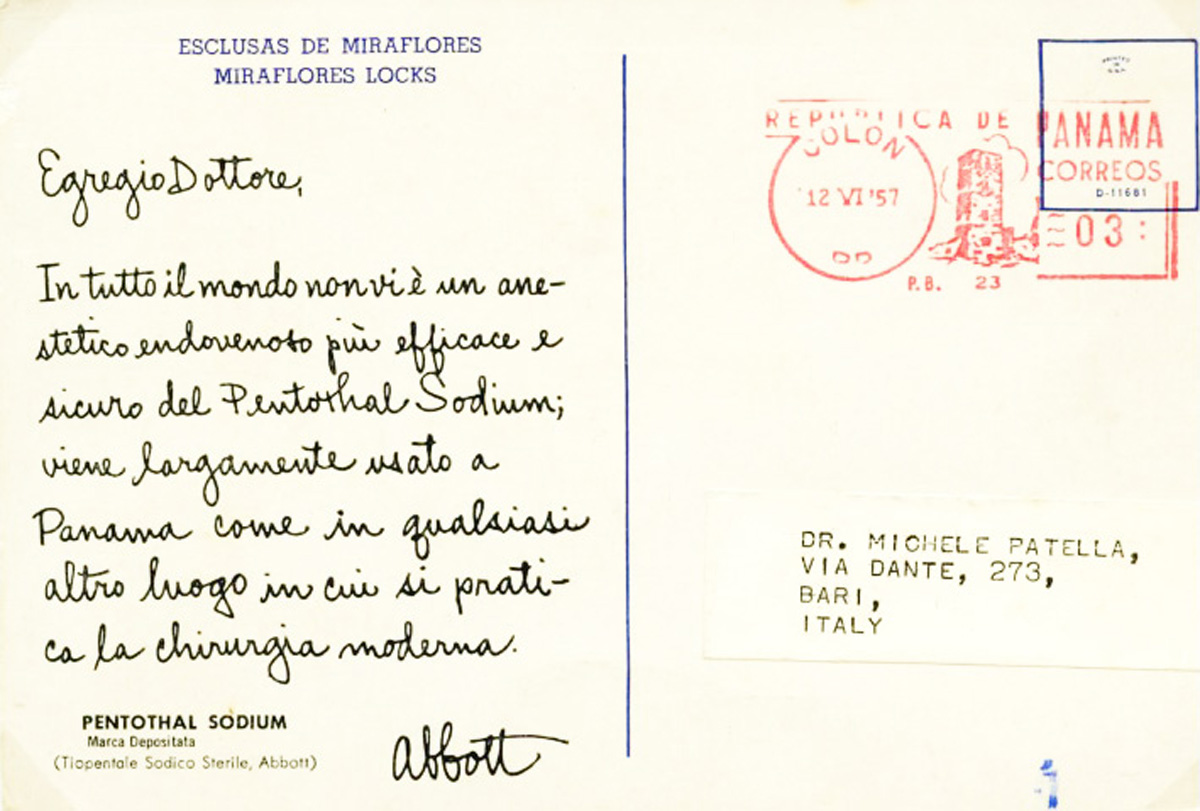 ESCLUSAS DE MIRAFLORES
MIRAFLORES LOCKS
Egregio Dottore,
In tutto il mondo non vi è un ane-
stetico endovenoso più efficace e
sicuro del Pentothal Sodium;
viene largamente usato a
Panama come in qualsiasi
altro luogo in cui si prati-
ca la chirurgia moderna.
PENTOTHAL SODIUM
Marca Depositata
(Tiopentale Sodico Sterile, Abbott)
Abbott
PRINTED
IN
U.S.A.
REPUBLICA DE PANAMA
COLON
CORREOS
D-11681
12 VI '57
03
P.B. 23
DR. MICHELE PATELLA,
VIA DANTE, 273,
BARI,
ITALY